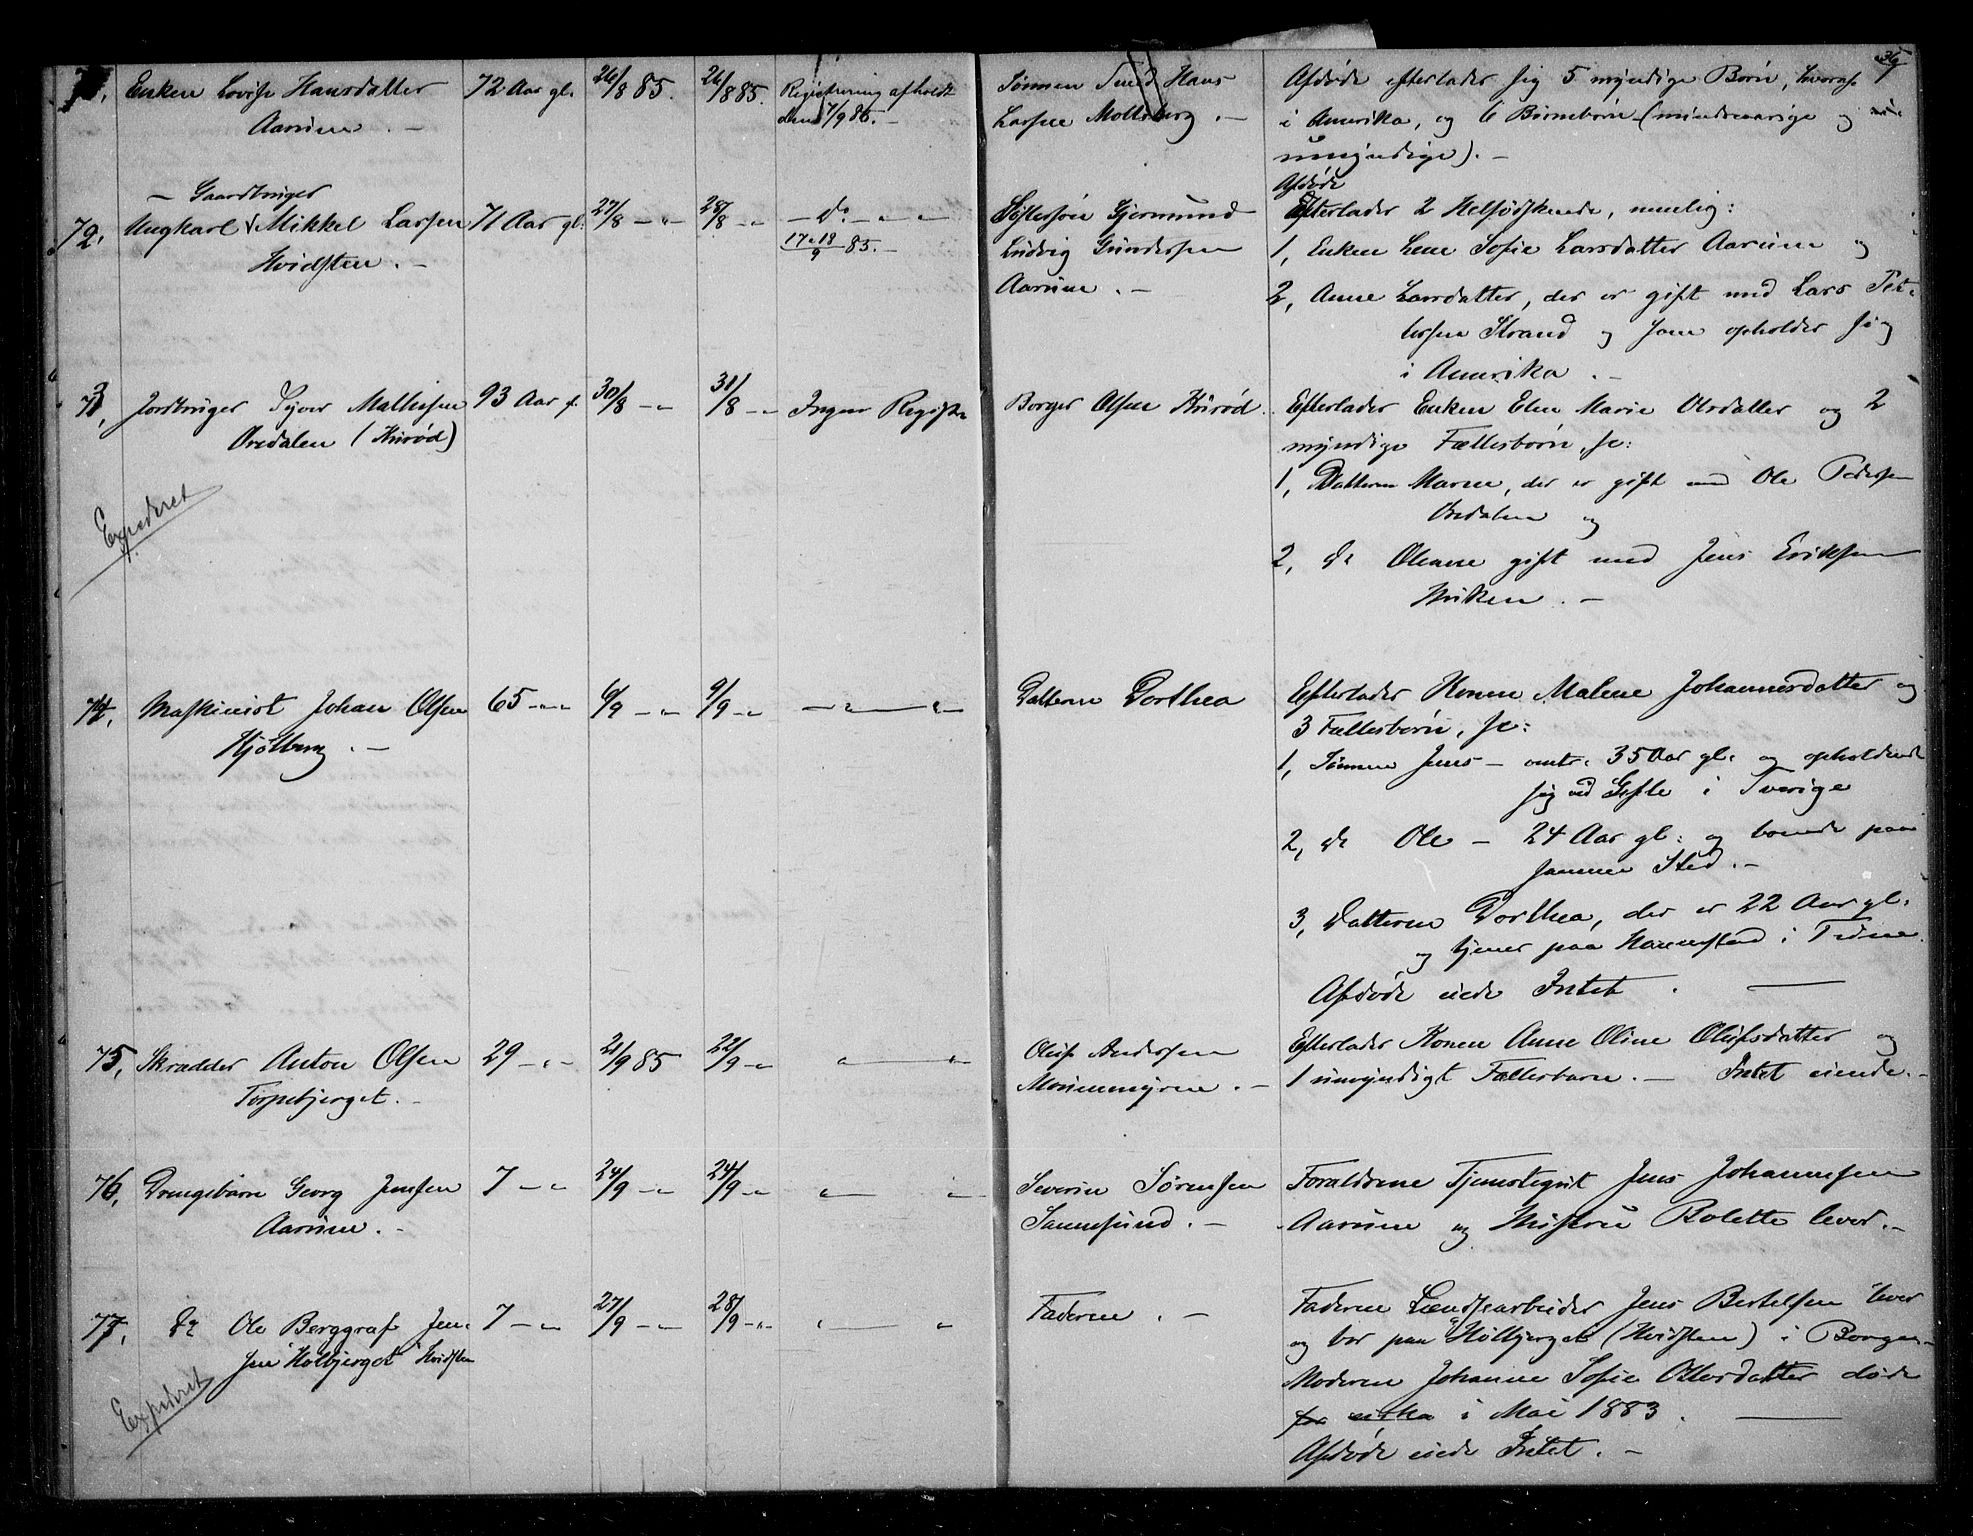 71. Enken Lovise Hansdatter 72 Aar gl. 26/8 85. 26/8 85. Registrering afholdt Sønnen Smed Hans Afdøde efterlader sig 5 myndige Børn, hvoraf 1
Aarum . — den 7/9 86. — Larsen Molteberg . — i Amerika, og 6 Børnebørn (mindreaarige og
umyndige). —
— Gaardbruger Afdøde
72. Ungkarl Mikkel Larsen 71 Aar gl. 27/8 — " 28/8 — " — Do — " — " Søstersøn Gjermund Efterlader 2 Helsødskende, nemlig:
Hvidsten . — 17 & 18/9 85. — Ludvig Gundersen 1, Enken Lene Sofie Larsdatter Aarum og
Aarum . — 2, Anne Larsdatter, der er gift med Lars Pet-
tersen Strand og som opholder sig
i Amerika . —
73, Jordbruger Syver Mathisen 93 Aar g. 30/8 — " 31/8 — " Ingen Registr. Borger Olsen Kurød. Efterlader Enken Elen Marie Olsdatter og 2
Oredalen (Kurød) myndige Fællesbørn, se:
1, Datteren Maren, der er gift med Ole Pedersen
Expederet Oredalen og
2, do Oleane gift med Jens Eriksen
Viken . —
74, Maskinist Johan Olsen 65 — " — 6/9 — " 9/9 — " — " — " — Datteren Dorthea Efterlader Konen Malene Johannesdatter og
Kjølberg . — 3 Fællesbørn, se:
1, Sønnen Jens — omtr. 35 Aar gl. og opholdende
sig ved Gefle i Sverige
2, do Ole — 24 Aar gl: og boende paa
samme Sted. —
3, Datteren Dorthea, der er 22 Aar gl.
og tjener paa Hannestad i Tune.
Afdøde eiede Intet . —
75, Skrædder Anton Olsen 29 — " — 21/9 85 22/9 — " " — " Oluf Andersen Efterlader Konen Anne Oline Olufsdatter og
Torpebjerget. — Morummyren . — 1 umyndigt Fællesbarn. — Intet eiende. —
76, Drengebarn Georg Jensen 7 — " 24/9 — " 24/9 — " " — " Severin Sørensen Forældrene Tjenestegut Jens Johannesen
Aarum . — Sannesund . — Aarum og Hustru Bolette lever. —
77, Do Ole Berggraf Jen- 7 — " 27/9 — " 28/9 — " " — " Faderen . — Faderen Lændsearbeider Jens Bertelsen lever
sen "Hølbjerget" Hvidsten og bor paa Hølbjerget (Hvidsten) i Borge. —
Expederet Moderen Johanne Sofie Ottersdatter døde
for cirka i Mai 1883 . —
Afdøde eiede Intet . —